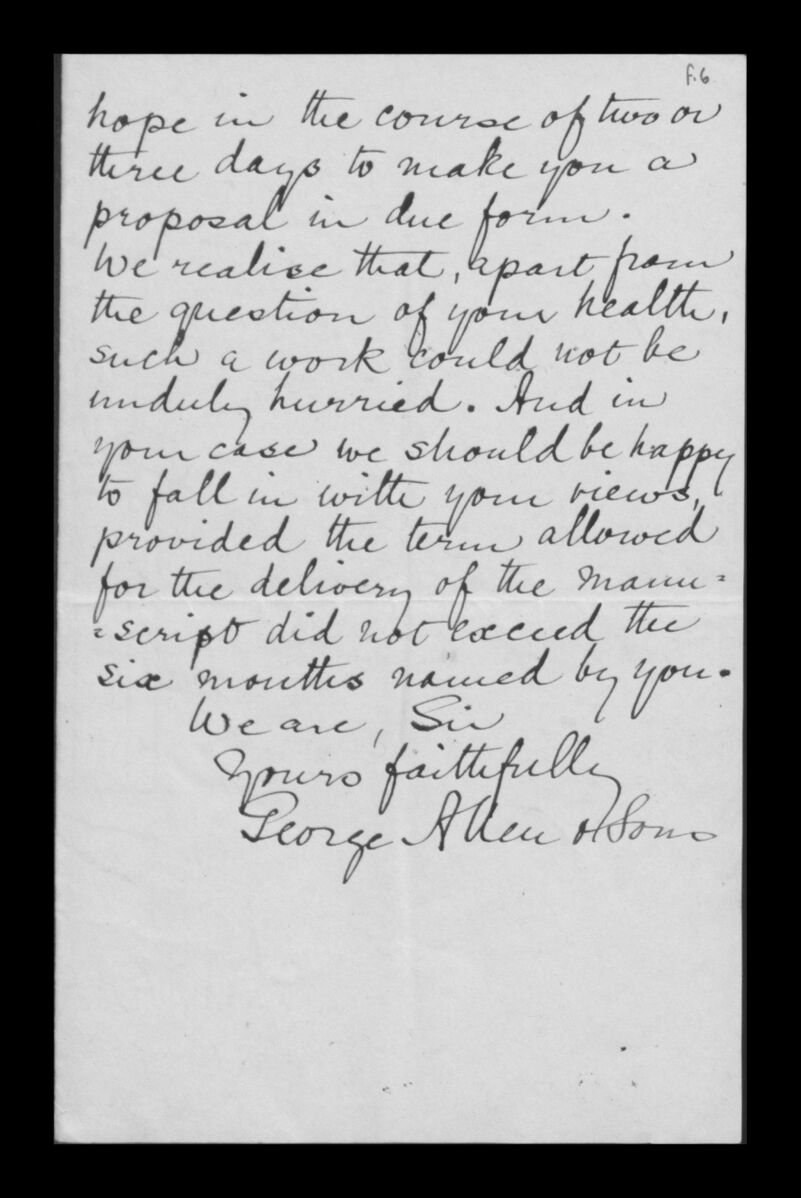 f.6
hope in the course of two or
three days to make you a
proposal in due form.
We realise that, apart from
the question of your health,
such a work could not be
unduly hurried. And in
your case we should be happy
to fall in with your views,
provided the term allowed
for the delivery of the manu=
=script did not exceed the
six months named by you.
We are, Sir
Yours faithfully
George Allen & Sons